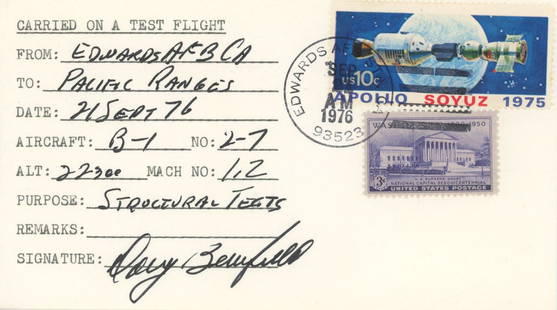 CARRIED ON A TEST FLIGHT
FROM: EDWARDS AFB CA
TO: PACIFIC RANGES
DATE: 21 SEPT 76
AIRCRAFT: B-1 NO: 2-7
ALT: 22300 MACH NO: 1.2
PURPOSE: STRUCTURAL TESTS
REMARKS:
SIGNATURE:
EDWARDS AFB
SEP
AM
1976
93523
US 10c
APOLLO SOYUZ 1975
1950
3¢
NATIONAL CAPITAL SESQUICENTENNIAL
UNITED STATES POSTAGE